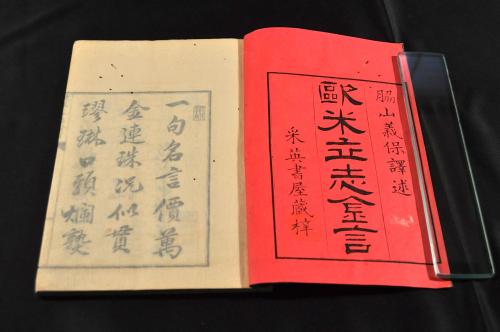 脇山義保譯述
歐米立志金言
采英書屋藏梓
一句名言價萬
金連珠况似貫
璆琳口頭爛熟